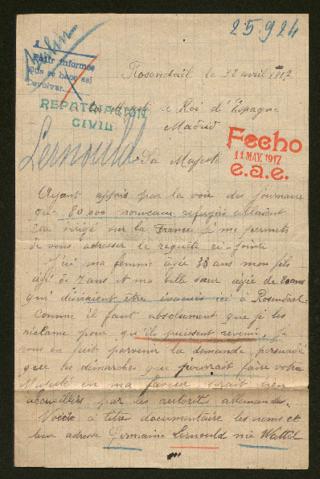 25.924
Rosendaël le 22 avril 1917
pedir informes
que se hace así
devolver.
REPATRIACIÓN
CIVIL
A Sa Majesté le Roi d'Espagne
Madrid
Lernould
Fecho
11 MAY. 1917
e.a.e.
Sa Majesté
Ayant appris par la voie des journaux
que 80 000 nouveaux réfugiés allaient
être dirigé sur la France, je me permets
de vous adresser la requête ci-jointe
J'ai ma femme âgée 33 ans mon fils
âgé de 7 ans et ma belle sœur âgée de 20 ans
qui désiraient être évacués ici à Rosendaël
Comme il faut absolument que je les
réclame pour qu'ils puissent revenir, je
vous en fait parvenir la demande, persuadé
que les démarches que pourrait faire votre
Majesté en ma faveur serait bien
accueillies par les autorités allemandes.
Voici à titre documentaire les noms et
leur adresse Germaine Lernould née Wattel